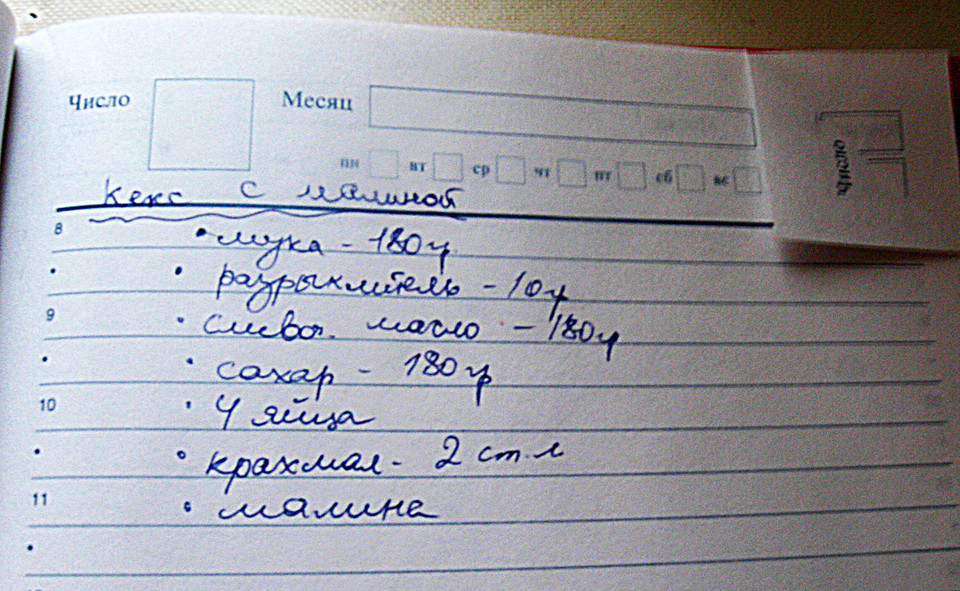 Число Месяц
пн вт ср чт пт сб вс
Число
Кекс с малиной
8 • мука - 180гр
• • разрыхлитель - 10гр
9 • сливоч. масло - 180гр
• • сахар - 180гр
10 • 4 яйца
• • крахмал - 2 ст.л
11 • малина
•